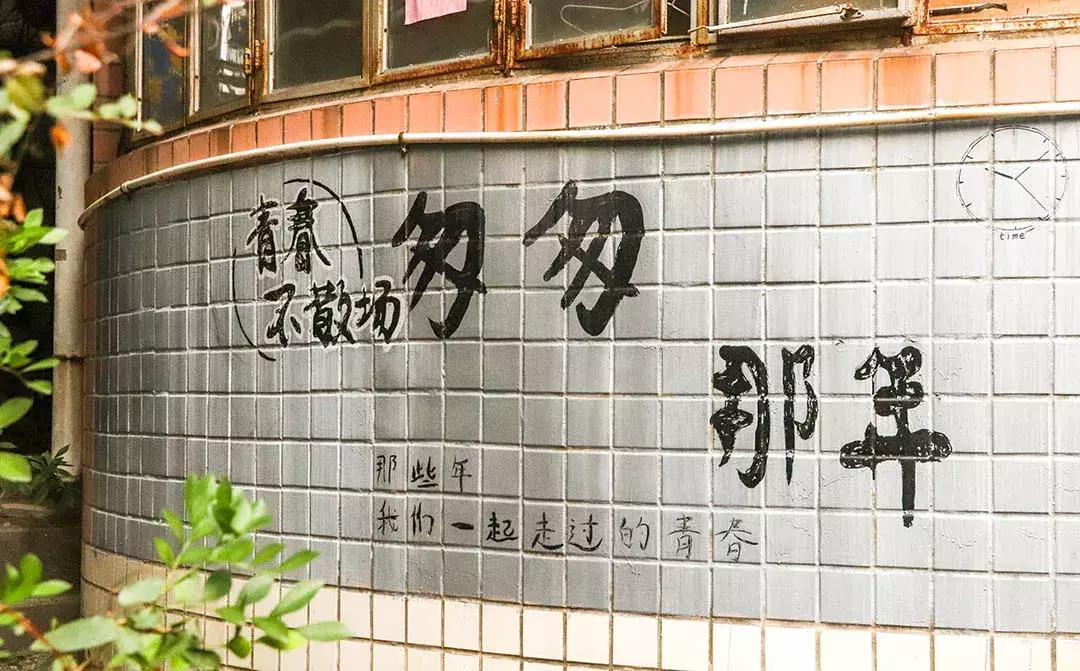 青春
不散场
匆匆
那年
那些年
我们一起走过的青春
time